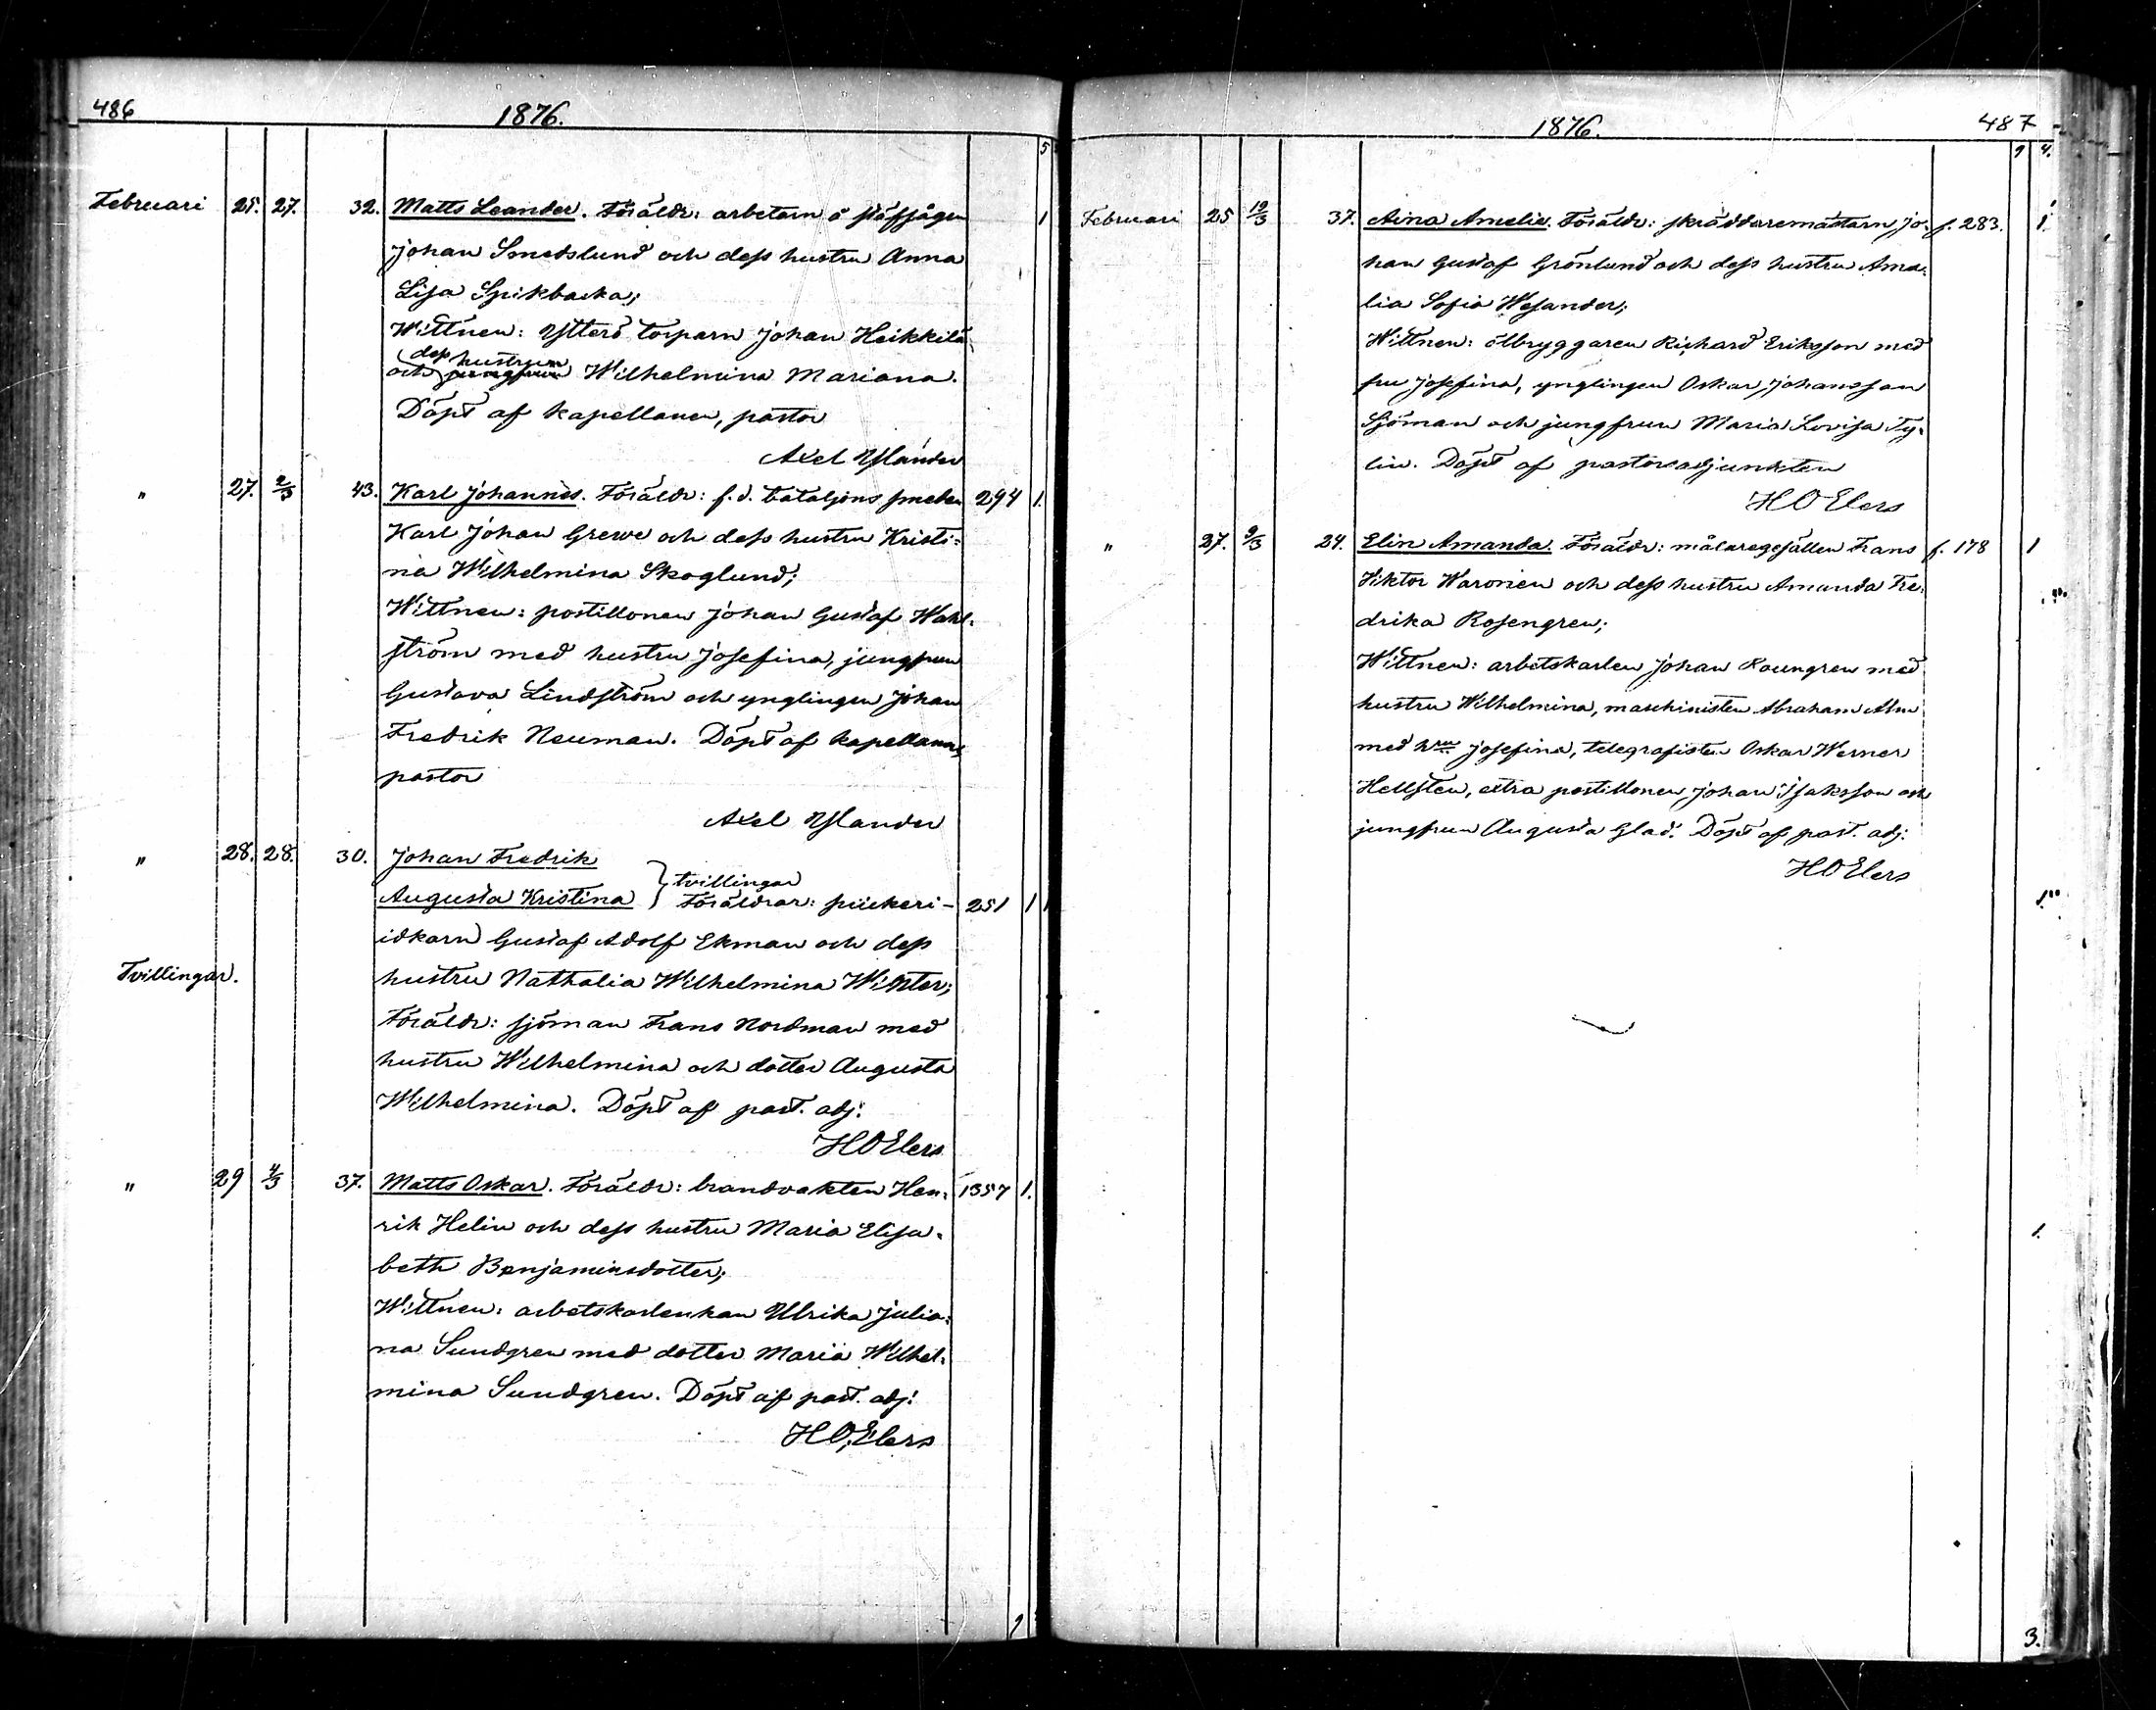 486
1876.
5
Februari 25. 27. 32. Matts Leander. Föräldr: arbetarn å
Johan Smedslund och dess hustru Anna 1
Lisa Spikbacka;
Wittnen: Ytterö torparn Johan Heikkilä
dess hustrun
och jungfrun Wilhelmina Mariana.
Döpt af kapellanen, pastor
Axel Ylander
" 27. 2/3 43. Karl Johannes. Föräldr: f.d. bataljons smeden 294 1.
Karl Johan Grewe och dess hustru Kristi=
na Wilhelmina Skoglund;
Wittnen: postillonen Johan Gustaf Wahl-
ström med hustru Josefina, jungfrun
Gustava Lindström och ynglingen Johan
Fredrik Neuman. Döpt af kapellanen,
pastor
Axel Ylander
" 28. 28. 30. Johan Fredrik
tvillingar
Augusta Kristina } Föräldrar: - 251 1 1
idkarn Gustaf Adolf Ekman och dess
Tvillingar. hustru Nathalia Wilhelmina
Föräldr: sjöman Frans Nordman med
hustru Wilhelmina och dotter Augusta
Wilhelmina. Döpt af past. adj.
HO Elers
" 29 4/3 37. Matts Oskar. Föräldr: brandvakten Hen= 1357 1.
rik Helin och dess hustru Maria Elisa-
beth Benjaminsdotter;
Wittnen: arbetskarlenkan Ulrika Julia=
na Sundgren med dotter Maria Wilhel=
mina Sundgren. Döpt af past. adj.
HO Elers
1876.
487
4.
Februari 25 12/3 37. Aina Amelie. Föräldr: skräddaremästarn Jo- f. 283. 1.
han Gustaf Grönlund och dess hustru Ama=
lia Sofia Wesander;
Wittnen: ölbryggaren Richard Eriksson med
fru Josefina, ynglingen Oskar Johansson
Sjöman och jungfrun Maria Lovisa Ty-
lin. Döpt af pastorsadjunkten
HO Elers
" 27. 9/3 24. Elin Amanda. Föräldr: målaregesällen Frans f. 178 1
Viktor Waronen och dess hustru Amanda Fre=
drika Rosengren;
Wittnen: arbetskarlen Johan med
hustru Wilhelmina, maschinisten Abraham Alm
med hru Josefina, telegrafisten Oskar Werner
Hellsten, extra postillonen Johan Isaksson och
jungfrun Augusta Glad. Döpt af past. adj.
HO Elers
1
1.
3.